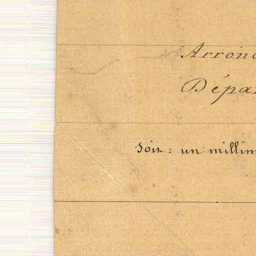 Arron
Dépa
Soit : un millim